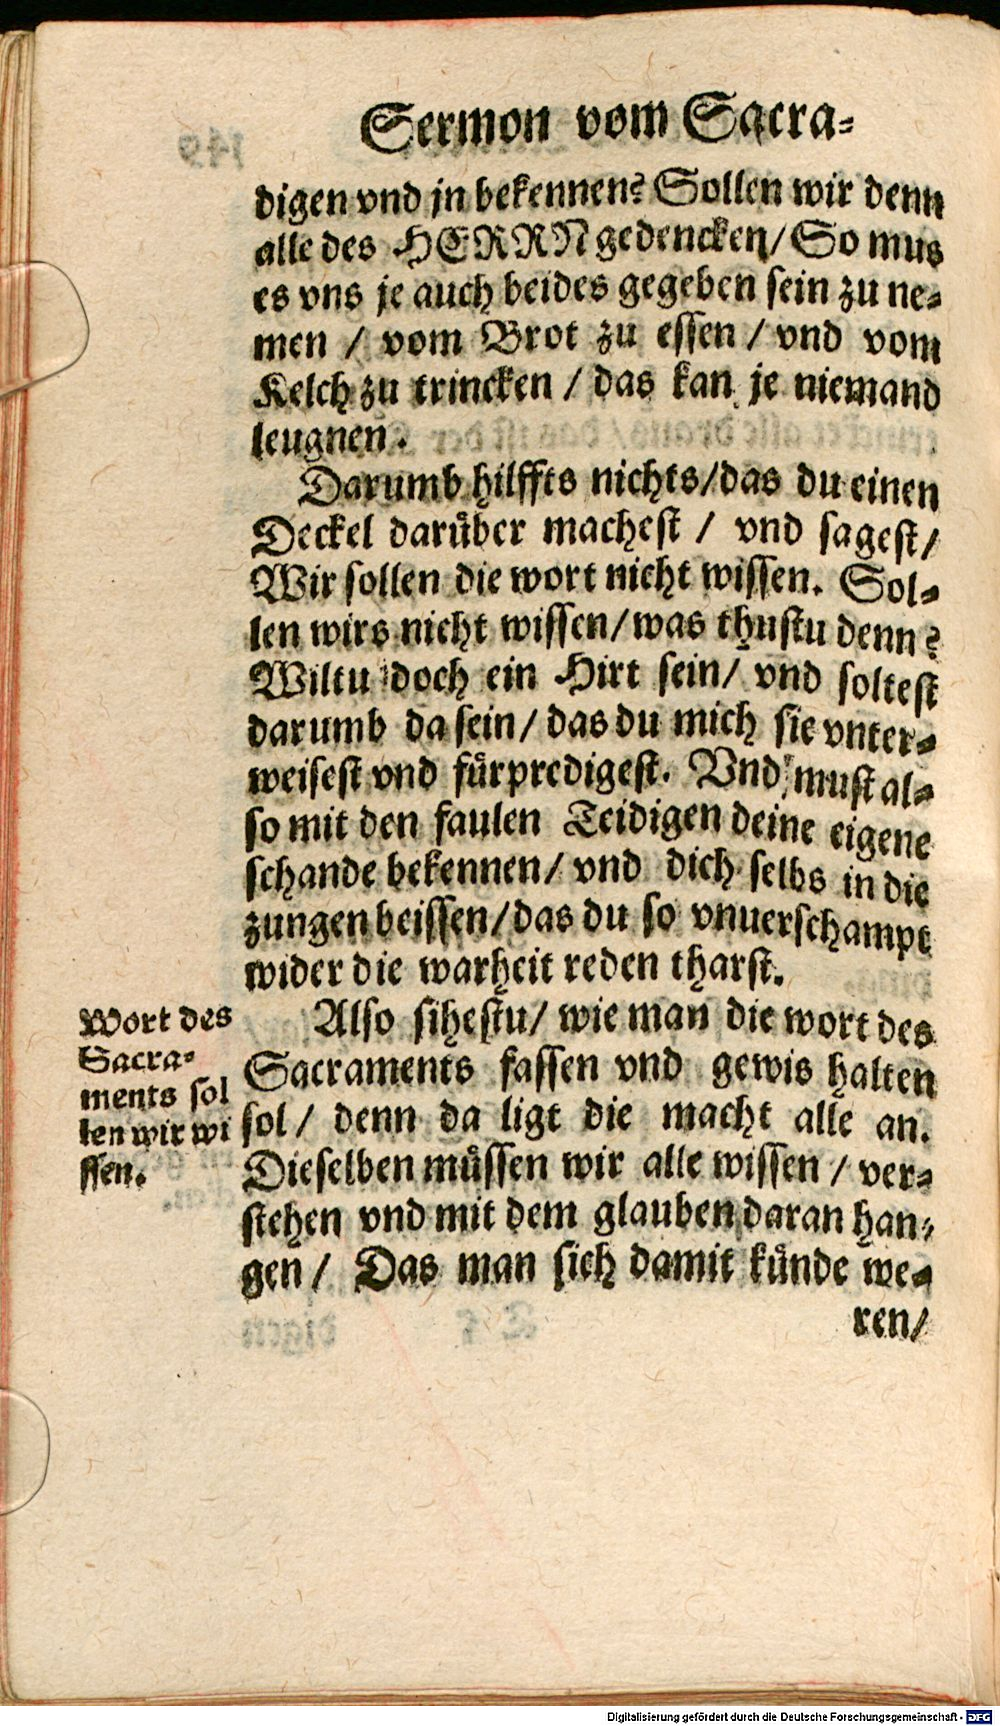 Sermon vom Sacra-
digen vnd jn bekennen? Sollen wir denn
alle des HERRN gedencken/ So mus
es vns je auch beides gegeben sein zu ne-
men / vom Brot zu essen / vnd vom
Kelch zu trincken / das kan je niemand
leugnen.
Darumb hilffts nichts/das du einen
Deckel darüber machest / vnd sagest/
Wir sollen die wort nicht wissen. Sol-
len wirs nicht wissen/was thustu denn?
Wiltu doch ein Hirt sein/ vnd soltest
darumb da sein/ das du mich sie vnter-
weisest vnd fürpredigest. Vnd must al-
so mit den faulen Teidigen deine eigene
schande bekennen/ vnd dich selbs in die
zungen beissen/das du so vnuerschampt
wider die warheit reden tharst.
Wort des
Sacra-
ments sol
len wir wi
ssen.
Also sihestu/ wie man die wort des
Sacraments fassen vnd gewis halten
sol/ denn da ligt die macht alle an.
Dieselben müssen wir alle wissen / ver-
stehen vnd mit dem glauben daran han-
gen / Das man sich damit künde we-
ren/
Digitalisierung gefördert durch die Deutsche Forschungsgemeinschaft - DFG